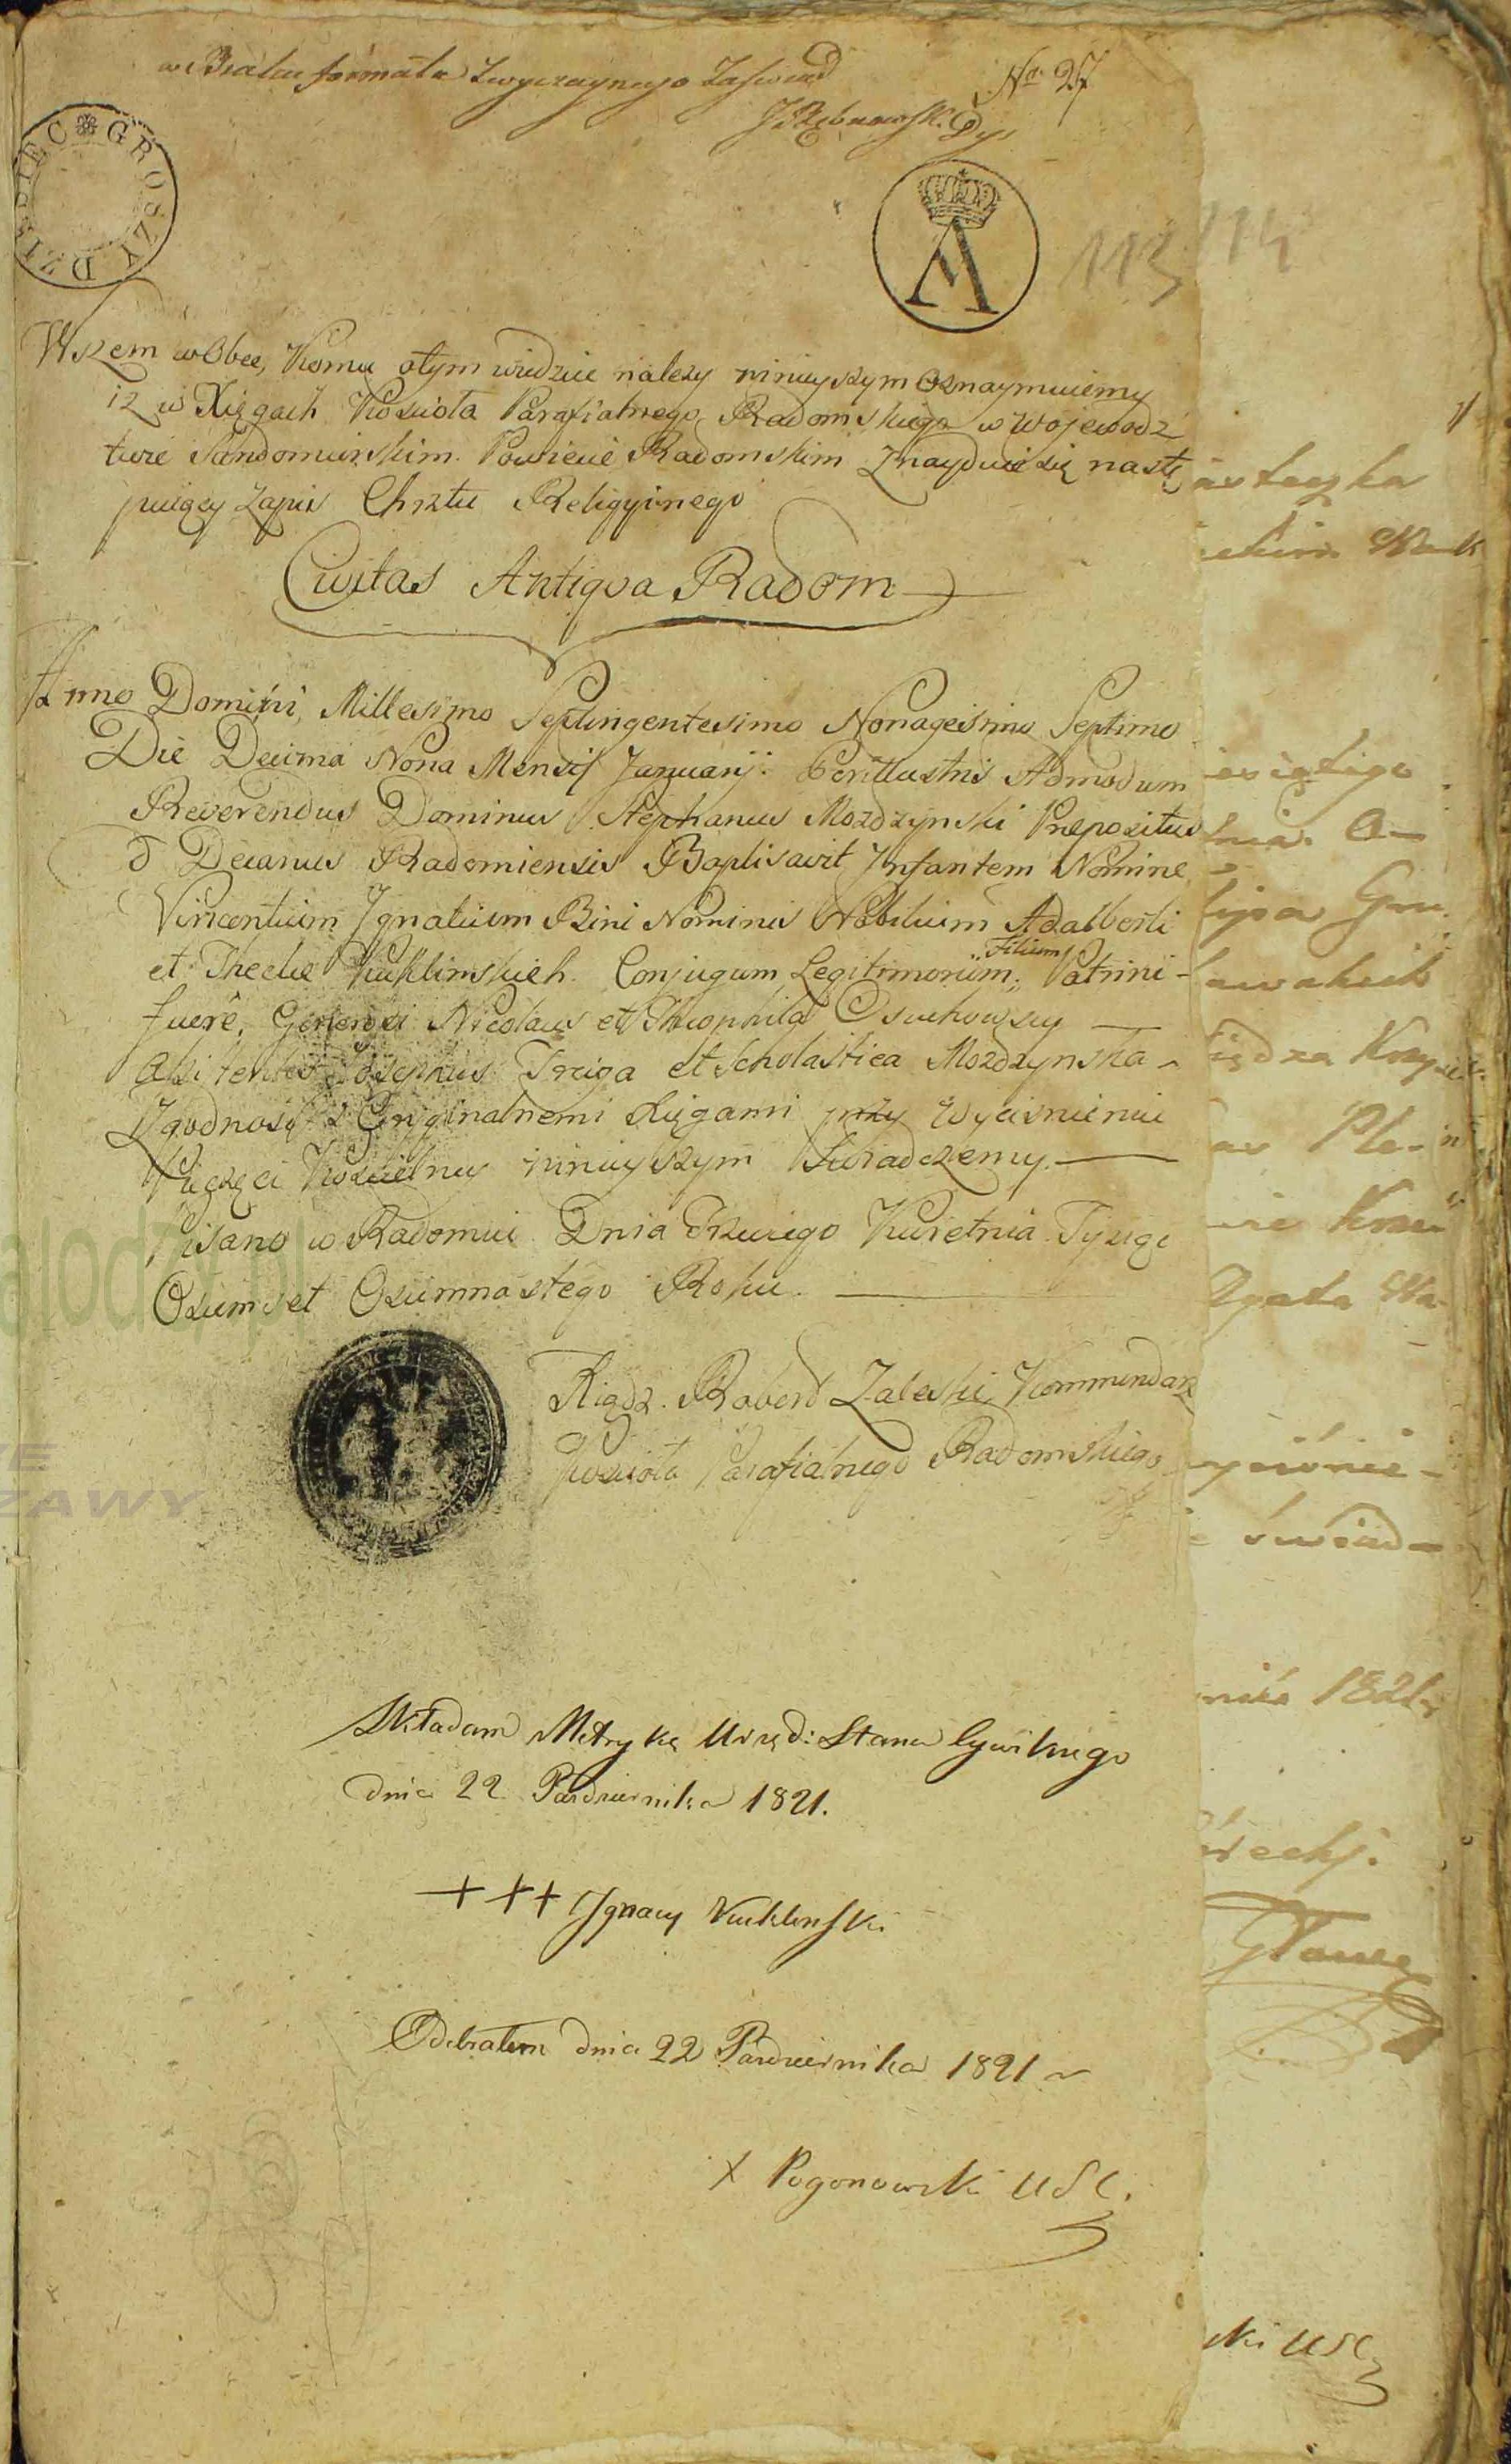 w Braku formatu zwyczaynego Zaświad
No. 27
DZIESIĘC GROSZY
A
113
114
Wszem wobec, komu otym wiedzieć należy ninieyszym Oznaymuiemy
iż w Xięgach Kościoła Parafialnego Radomskiego w Wojewodz
twie Sandomirskim Powiecie Radomskim Znayduie się nastę
puiący Zapis Chrztu Religyinego
Civitas Antiqva Radom
Anno Domini Millesimo Septingentesimo Nonagesimo Septimo
Die Decima Nona Mensis Januarij. Perillustris Admodum
Reverendus Dominus Stephanus Mozdzynski Prepozitus
& Decanus Radomiensis Baptisavit Infantem Nomine
Vincentium Ignatium Bini Nominis Nobilium Adalberti
et Theclæ Kuklinskich Conjugum Legitimorum Filium Patrini
fuere, Generosi Nicolaus et Theophila Osuchowscy
Asistentes Josephus Trciga et Scholastica Mozdzynska
Zgodność z Oryginalnemi Xięgami przy Wyciśnieniu
Pieczęci Kościelney ninieyszym Świadczemy
Pisano w Radomiu Dnia Trzeciego Kwietnia Tysiąc
Osiemset Osiemnastego Roku.
Xiądz Roberd Zaleski Kommendarz
Kościoła Parafialnego Radomskiego
Składam Metrykę Urzęd: Stanu Cywilnego
dnia 22 Październik​a 1821.
+++ Ignacy Kuklinski
Odebrałem dnia 22 Października 1821
X Pogonowski USC.
1821
ski USC